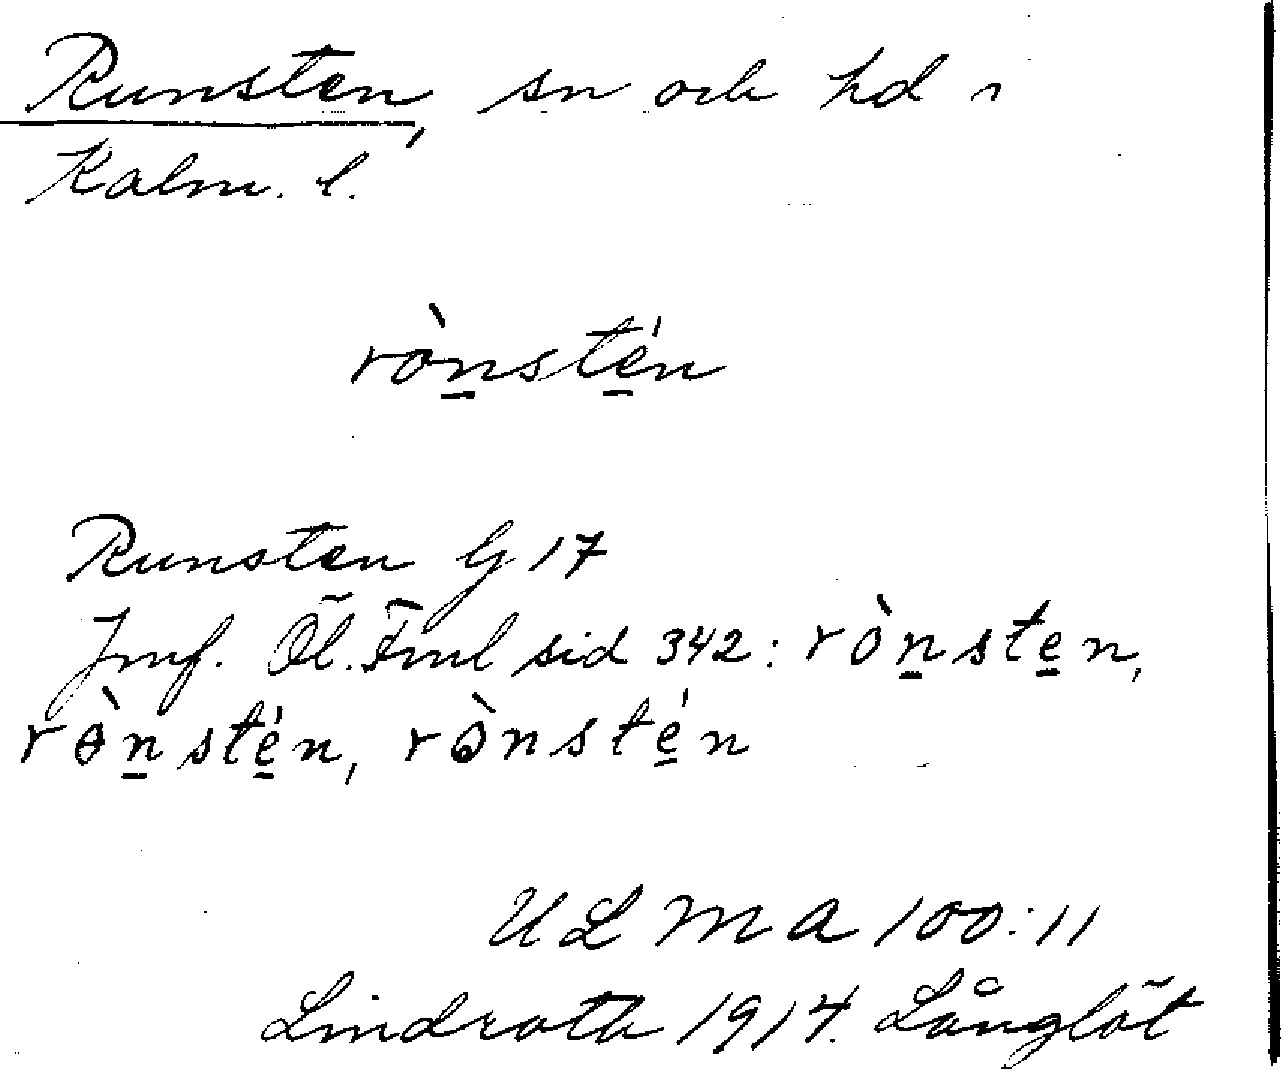 Runsten, sn och hd i
Kalm. l.
ròn̲sté̲n
Runsten G 17
Jmf. Öl. Fml sid 342: ròn̲ste̲n,
rɵ̀n̲sté̲n, rònsté̲n
ULMA 100:11
Lindroth 1914. Långlöt